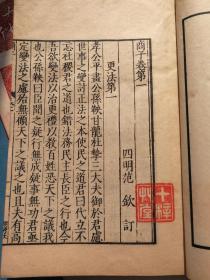 商子卷第一
四明范 欽 訂
更法第一
孝公平畫公孫鞅甘龍杜摯三大夫御於君慮
世事之變討正法之本使民之道君曰代立不
忘社稷君之道也錯法務民主長臣之行也今
吾欲變法以治更禮以教百姓恐天下之議我
也公孫鞅曰臣聞之疑行無成疑事無功君亟
定變法之慮殆無顧天下之議之也且夫有高